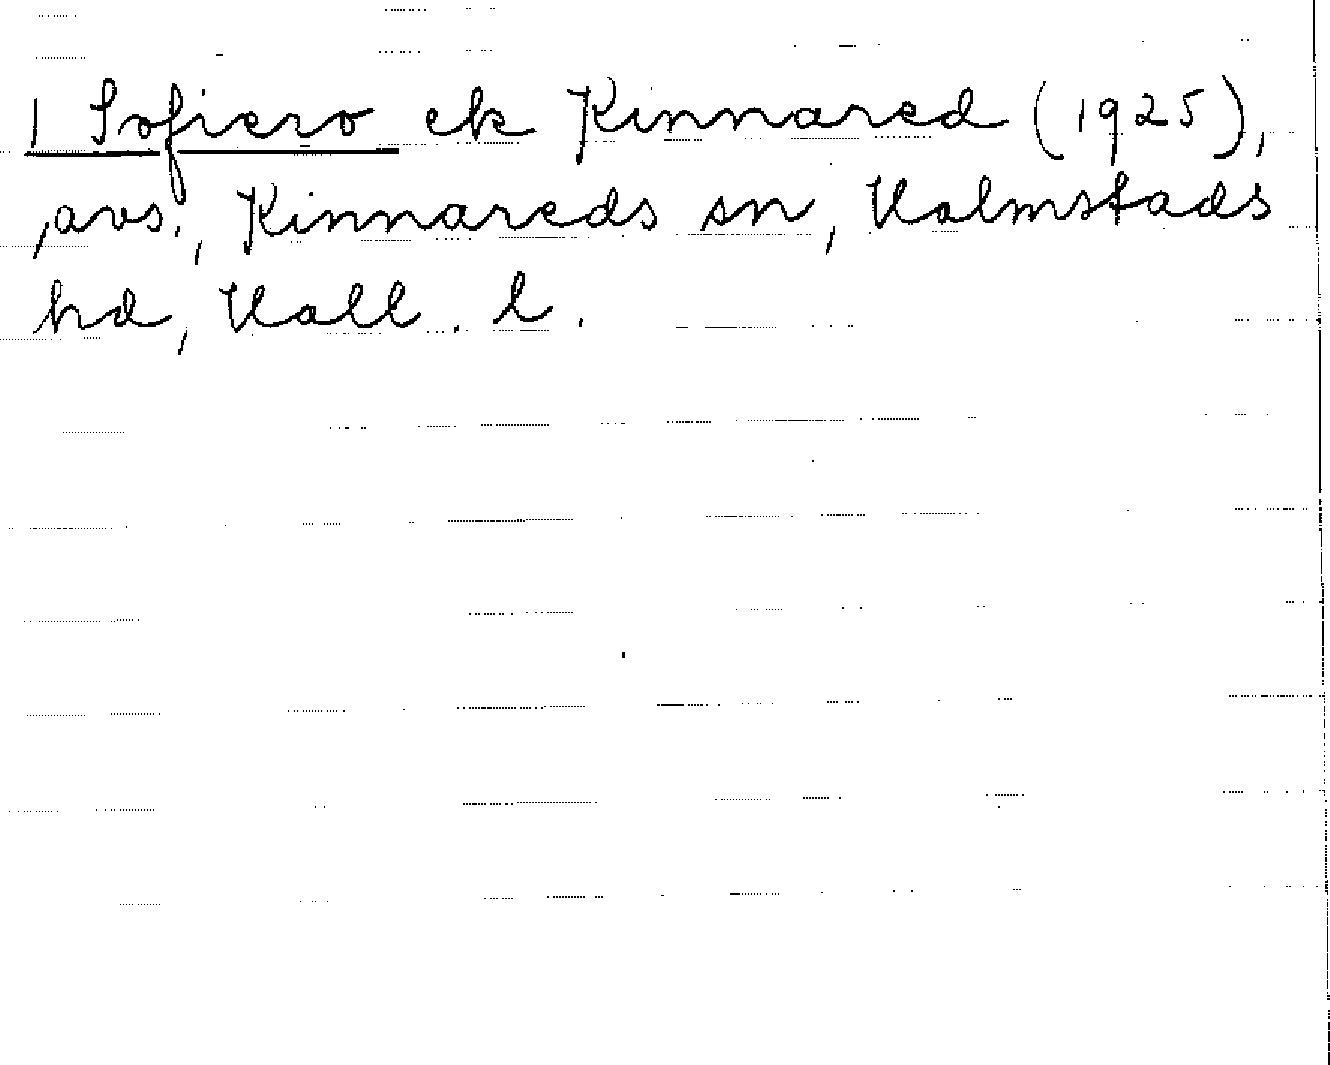 1 Sofiero ek Kinnared (1925),
, avs., Kinnareds sn, Halmstads
hd, Hall. l.